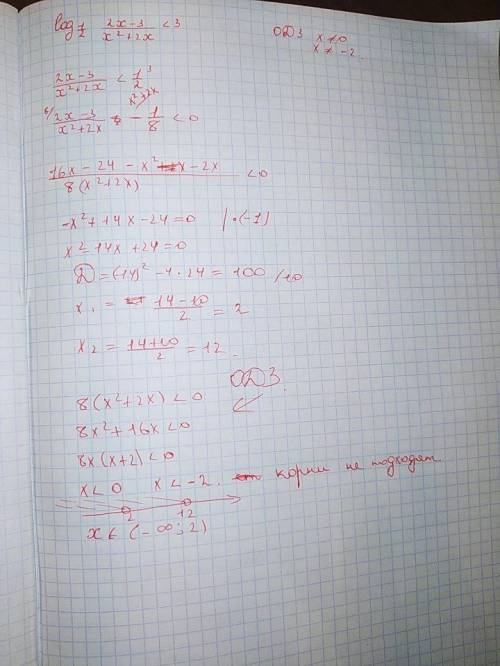 log 1/2 (2x-3)/(x²+2x) < 3
ОДЗ x ≠ 0
x ≠ -2.
(2x-3)/(x²+2x) < (1/2)³
8/ (2x-3)/(x²+2x) - x²+2x/ 1/8 < 0
(16x - 24 - x² - 2x)/(8(x²+2x)) < 0
-x² + 14x - 24 = 0 | ·(-1)
x² - 14x + 24 = 0
D = (-14)² - 4·24 = 100 /10
x₁ = (14-10)/2 = 2
x₂ = (14+10)/2 = 12.
ОДЗ.
8(x²+2x) < 0
8x² + 16x < 0
8x(x+2) < 0
x < 0 x < -2. корни не подходят
2 12
x ∈ (-∞; 2)